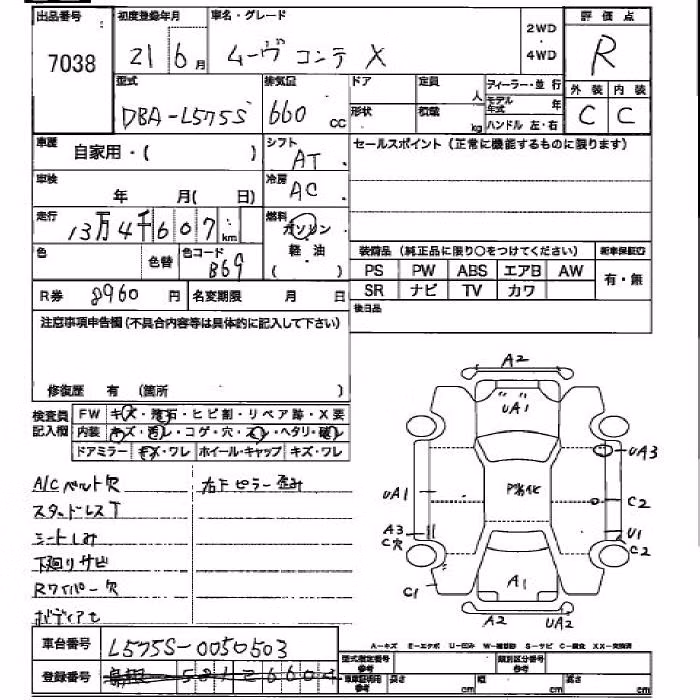 出品番号 初度登録年月 車名・グレード 2WD・4WD 評価点
7038 21 6月 ムーヴ コンテ X R
型式 排気量 ドア 定員 人 ディーラー・並 行 外装 内装
DBA-L575S 660 cc 形状 積載 kg モデル年式 年 ハンドル 左・右 C C
車歴 自家用・( ) シフト AT セールスポイント (正常に機能するものに限ります)
車検 年 月( 日) 冷房 AC
走行 13万4千607km 燃料 ガソリン
色 色替 色コード B69 軽・油 ( )
装備品 (純正品に限り○をつけてください) 新車保証書
PS PW ABS エアB AW 有・無
SR ナビ TV カワ
R券 8960 円 名変期限 月 日 後日品
注意事項申告欄(不具合内容等は具体的に記入して下さい)
修復歴 有 (箇所 )
検査員記入欄 FW キズ・飛石・ヒビ割・リペア跡・X要
内装 キズ・汚レ・コゲ・穴・スレ・ヘタリ・破レ
ドアミラー キズ・ワレ ホイール・キャップ キズ・ワレ
A/Cベルト欠 右Fピラー歪み
スタッドレスT
シートしみ
下廻りサビ
Rワイパー欠
A2
UA1
UA3
P劣化
UA1
C2
A3
C穴
U1
C2
C1
A1
A2 UA2
車台番号 L575S-0050503
A-キズ E-エクボ U-凹み S-サビ C-腐食 XX-交換済
登録番号 島根 581 と 6604
型式指定番号 参考 類別区分番号 参考
車庫証明用 参考 長さ cm 幅 cm 高さ cm